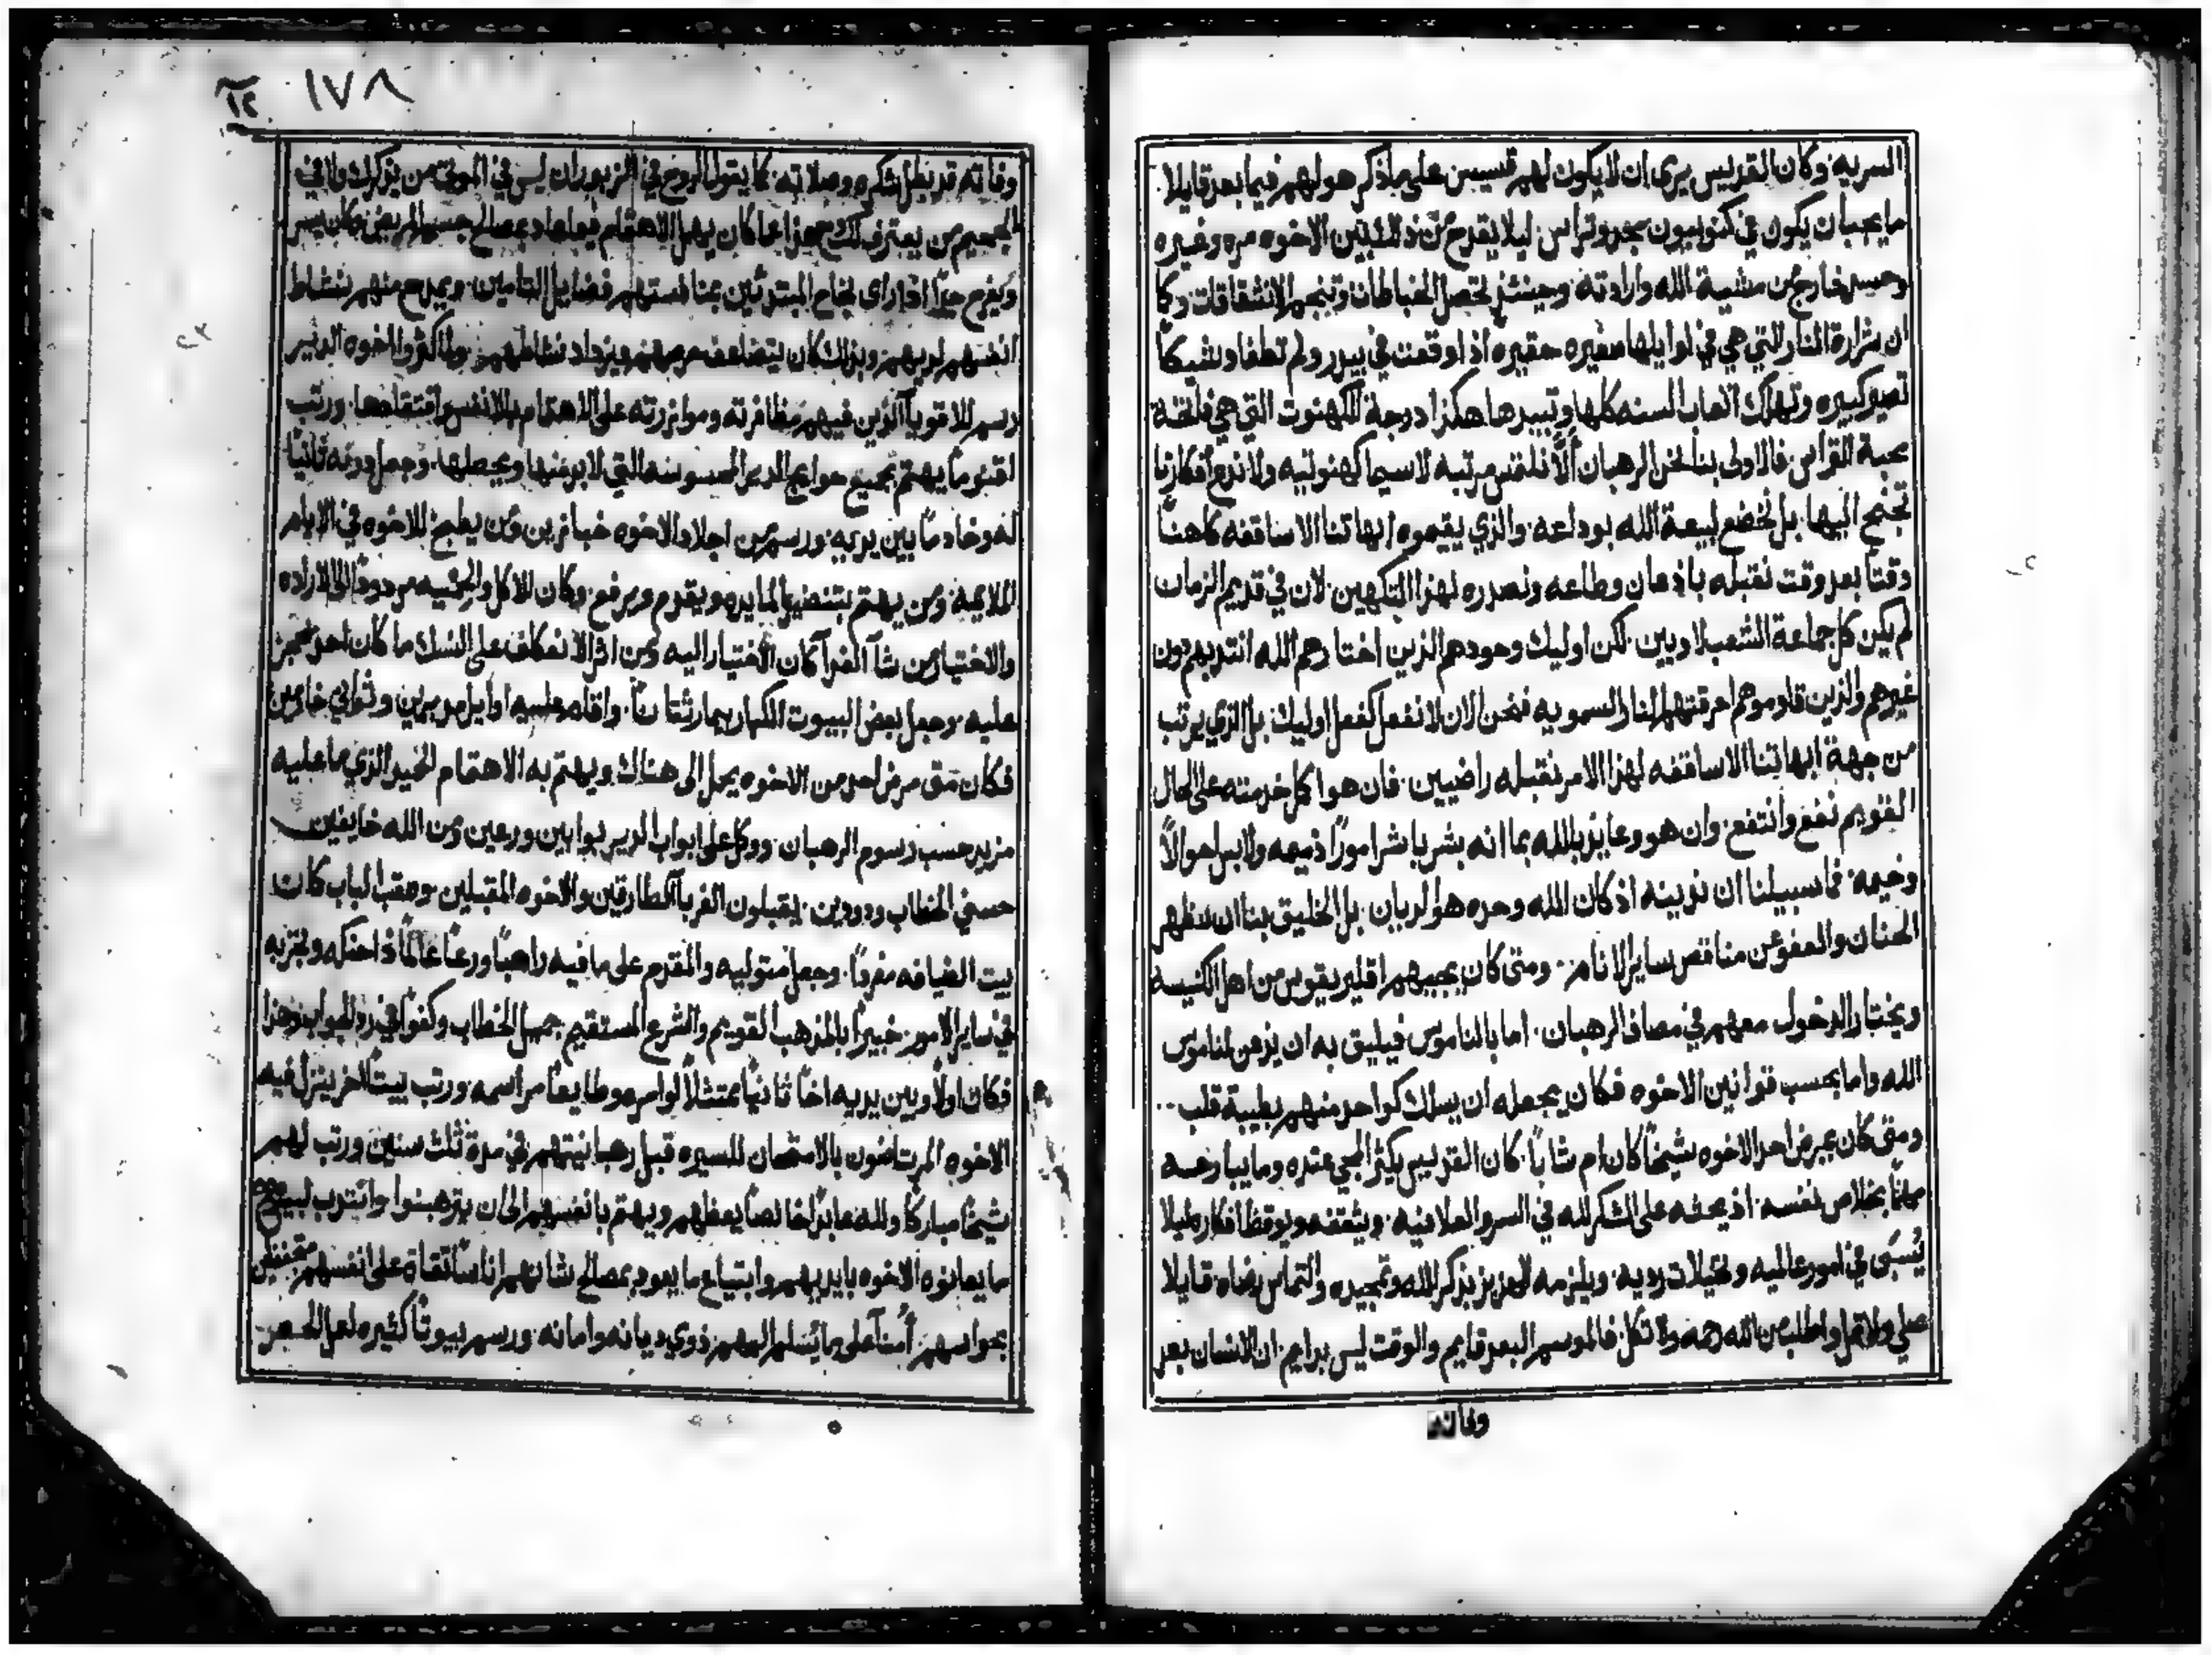 السريه وكان القديس يرى ان لا يكون لهم قسيسين على ما ذكر هو لهم فيما بعد قايلا
ما يجب ان يكون في كنوبيون مجد وتراس ليلا يقدح من ذلك بين الاخوه مره وغيره
وحسد خارج من مشية الله وارادته وحينئذ تحصل الخباطات وتنجم الانشقاقات وكا
ان شرارة النار التي هي في اوايلها صغيره حقيره اذا وقعت في بيدر ولم تطفا وشيكا
تصير كبيره وتهلك اتعاب السنه كلها وتبيدها هكذا درجة الكهنوت التي هي
محبة القراس فالاولى بنا نحن الرهبان ألا نلتمس مرتبه لا سيما كهنوتيه ولا ندع افكارنا
تجنح اليها بل نخضع لبيعة الله بوداعه والذي يقيموه ابهاتنا الاساقفه كاهنا
وقتا بعد وقت نقبله باذعان وطاعه ونصدره لهذا التكهين لان في قديم الزمان
لم يكن كل جماعة الشعب لاويين لكن اوليك وحدهم الذين اختارهم الله انتدبهم دون
غيرهم والذين قاوموهم احرقتهم النار السمويه فنحن الان لا نفعل كفعل اوليك بل الذي يرتب
من جهة ابهاتنا الاساقفه لهذا الامر نقبله راضيين فان هو اكل خدمته على الحال
القويم نفع وانتفع وان هو وعايذ بالله بما انه بشر باشر امورا ذميمه ولابس احوالاً
وخيمه فما سبيلنا ان ندينه اذ كان الله وحده هو الديان بل الخليق بنا ان نظهر
الحنان والعفو عن مناقص ساير الانام ومتى كان يجيبهم اقليريقوس من اهل الكنيسه
ويختار الدخول معهم في مصاف الرهبان اما بالناموس فيليق به ان يذعن لناموس
الله واما بحسب قوانين الاخوه فكان يجعله ان يسلك كواحد منهم بطيبة قلب
ومتى كان يمرض احد الاخوه شيخا كان ام شابا كان القديس يكثر المجي عنده وما يبارحه
مهتما بخلاص نفسه اذ يحثه على الشكر لله في السر والعلانيه ويثقفه ويوقظ افكاره ليلا
يُسبَى في امور عالميه وتخيلات رديه ويلزمه الهذيذ بذكر الله وتمجيده والتماس رضاه قايلا
صلي ولا تمل واطلب من الله رحمه ولا تكل فالموسم البعد قايم والوقت ليس بدايم ان الانسان بعد
وفاته
١٧٨
وفاته قد بطل شكره وصلاته كما يقول الروح في الزبور ان ليس في الموتى من يذكرك ولا في
الجحيم من يعترف لك ومع هذا ما كان يهمل الاهتمام فيما عاد بمصالح جسم المريض وكان يسر
ويفرح جدًا اذا راى نجاح المبتدئين بمنافستهم فضايل التامين ويمدح منهم نشاط
انفسهم لديهم وبذلك كان يتضاعف حرصهم ويزداد نشاطهم ولما كثروا اخوه الدير
رسم للاقوياء الذين فيهم مظافرته وموازرته على الاهتمام بالانفس وافتقادها ورتب
اقنوما يهتم بجميع حوايج الدير المحسوسه التي لابد منها ويحصلها وجعل دونه ثانيا
له وخادما بين يديه ورسم من اجل اود الاخوه خبازين ومن يطبخ للاخوه في الايام
الملايمه ومن يهتم بتنضيد المايده ويقدم ويرفع وكان الاكل والحميه مردودا الى الاراده
والاختيار من شآ الغدآ كان الاختيار اليه ومن اثر الانعكاف على النسك ما كان احد يحجز
عليه وجعل بعض البيوت الكبار بيمارستانا واقام عليه اوايل مدبرين وثواني خادمين
فكان متى مرض احد من الاخوه يحمل الى هناك ويهتم به الاهتمام الخير الذي ما عليه
مزيد حسب رسوم الرهبان ووكل على ابواب الدير بوابين ورعين ومن الله خايفين
حسني الخطاب ودودين يقبلون الغربآ الطارقين والاخوه المقبلين وعقب الباب كان
بيت الضيافه مفردًا وجعل متوليه والمقدم على ما فيه راهبًا ورعًا عالمًا ذا حنكه وتجربه
في ساير الامور خبيرًا بالمذهب القويم والشرع المستقيم جميل الخطاب وكفوًا في رد الجواب وهذا
فكان اولاً وبين يديه اخًا ثانيًا ممتثلاً لاوامره وطايعًا مراسمه ورتب بيتًا اخر ينزل فيه
الاخوه المرتاضون بالامتحان للسيره قبل رهبانيتهم في مدة ثلث سنين ورتب لهم
شيخًا مباركًا ولله عابدًا خالصًا يعظهم ويهتم بانفسهم الى ان يترهبنوا وانتدب لبيع
ما يعانوه الاخوه بايديهم وابتياع ما يعود بمصالح شانهم اناسًا تقاة على انفسهم متحننين
بحواسهم أُمنآ على ما يُسلم اليهم ذوي ديانه وامانه ورسم بيوتًا كثيره لعمل الحصر